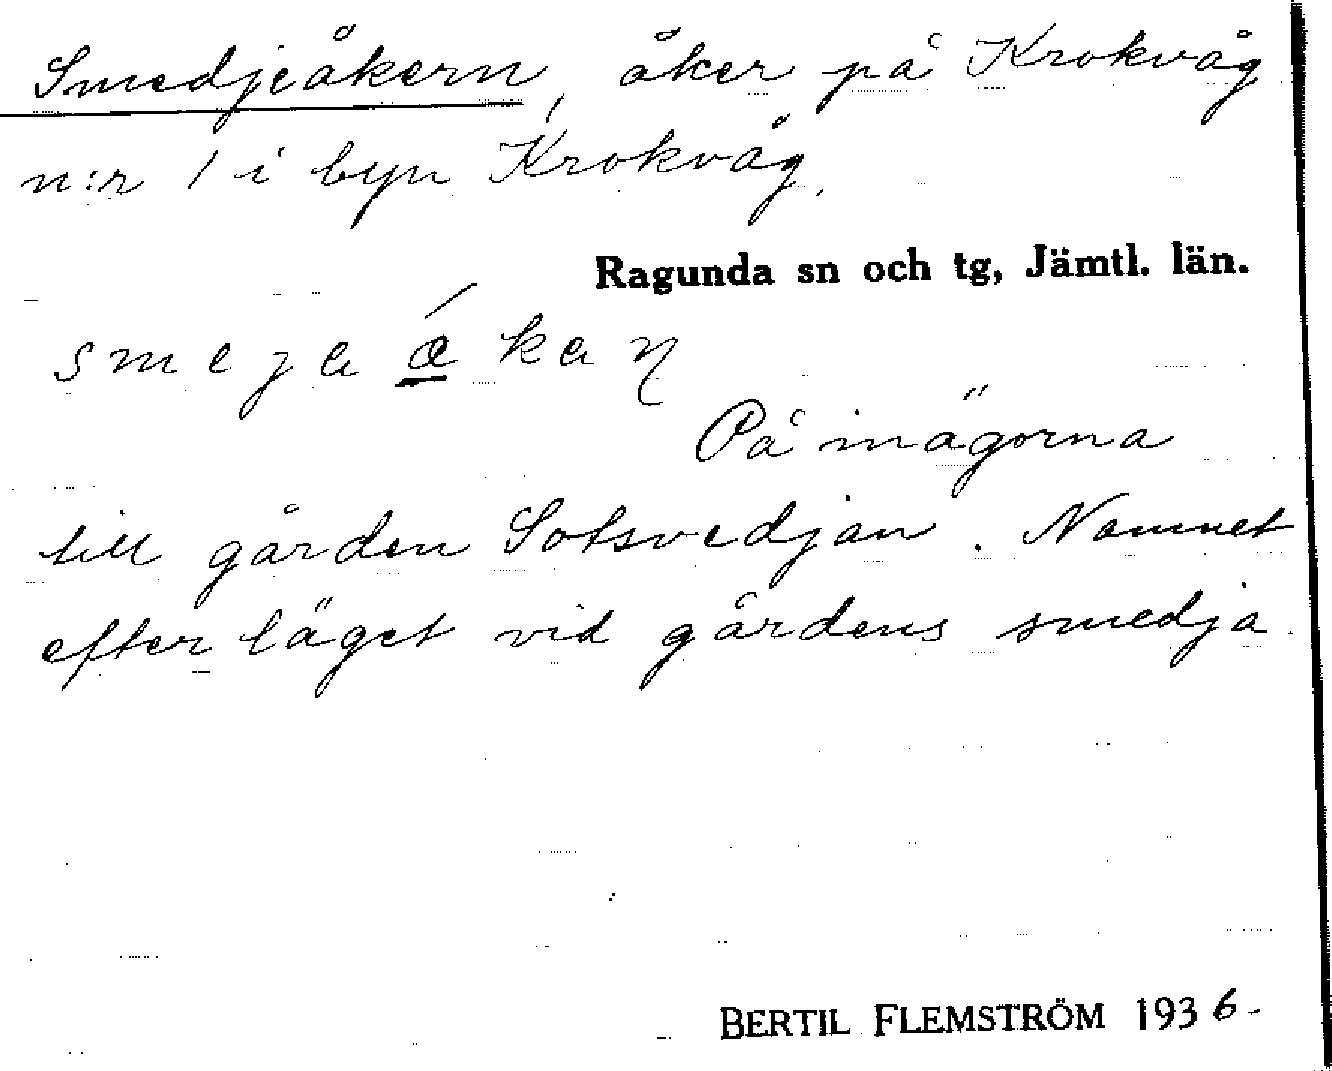 Smedjeåkern, åker på Krokvåg
n:r 1 i byn Krokvåg.
Ragunda sn och tg, Jämtl. län.
På inägorna
till gården Sotsvedjan. Namnet
efter läget vid gårdens smedja.
BERTIL FLEMSTRÖM 1936.